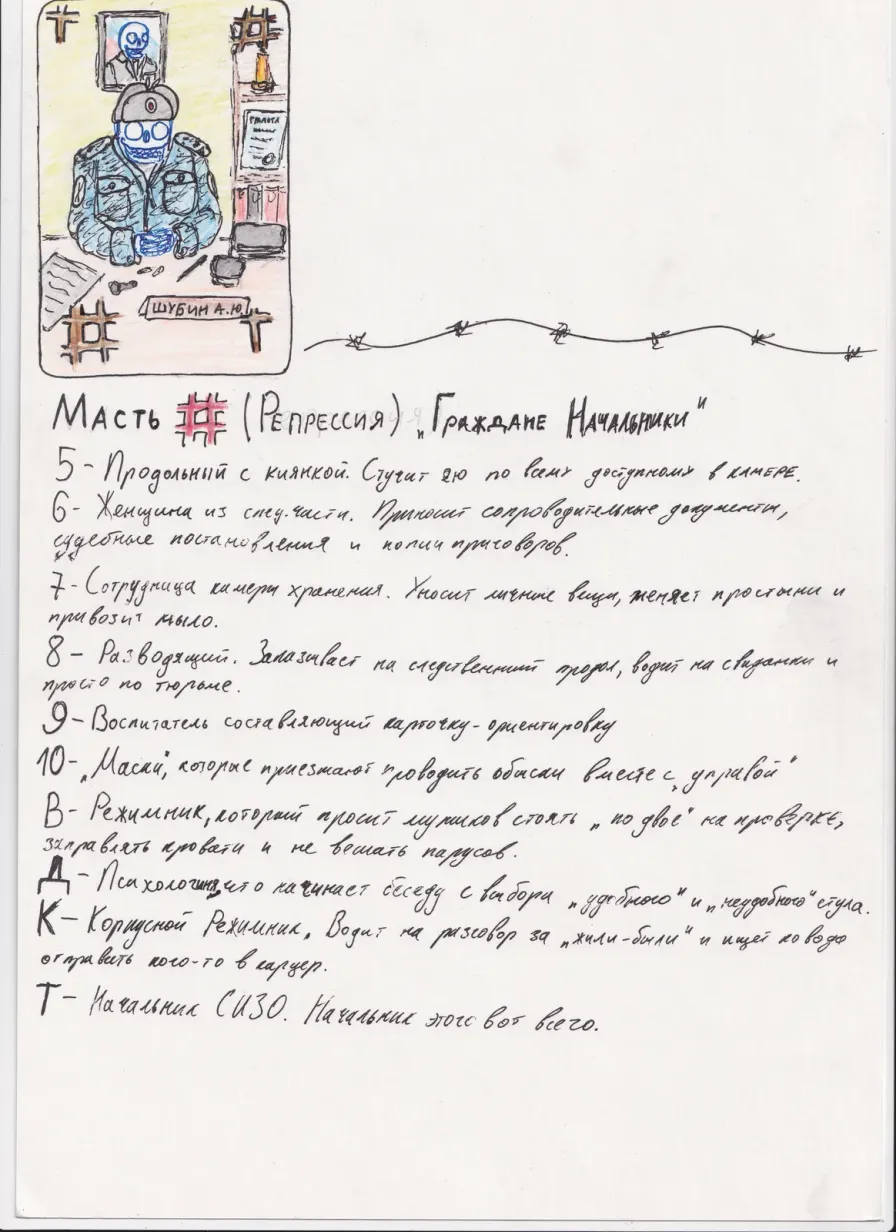 Т
#
ГРАМОТА
ШУБИН А.Ю.
#
Т
Масть # (Репрессия) „Граждане Начальники"
5 - Продольный с киянкой. Стучит ею по всему доступному в камере.
6 - Женщина из спец.части. Приносит сопроводительные документы,
судебные постановления и копии приговоров.
7 - Сотрудница камеры хранения. Уносит личные вещи, меняет простыни и
привозит мыло.
8 - Разводящий. Заказывает на следственный продол, водит на свиданки и
просто по тюрьме.
9 - Воспитатель составляющий карточку-ориентировку
10 - „Маски", которые приезжают проводить обыски вместе с „управой"
В - Режимник, который просит мужиков стоять „по двое" на проверке,
заправлять кровати и не вешать парусов.
Д - Психологиня, что начинает беседу с выбора „удобного" и „неудобного" стула.
К - Корпусной Режимник. Водит на разговор за „жили-были" и ищет повода
отправить кого-то в карцер.
Т - Начальник СИЗО. Начальник этого вот всего.